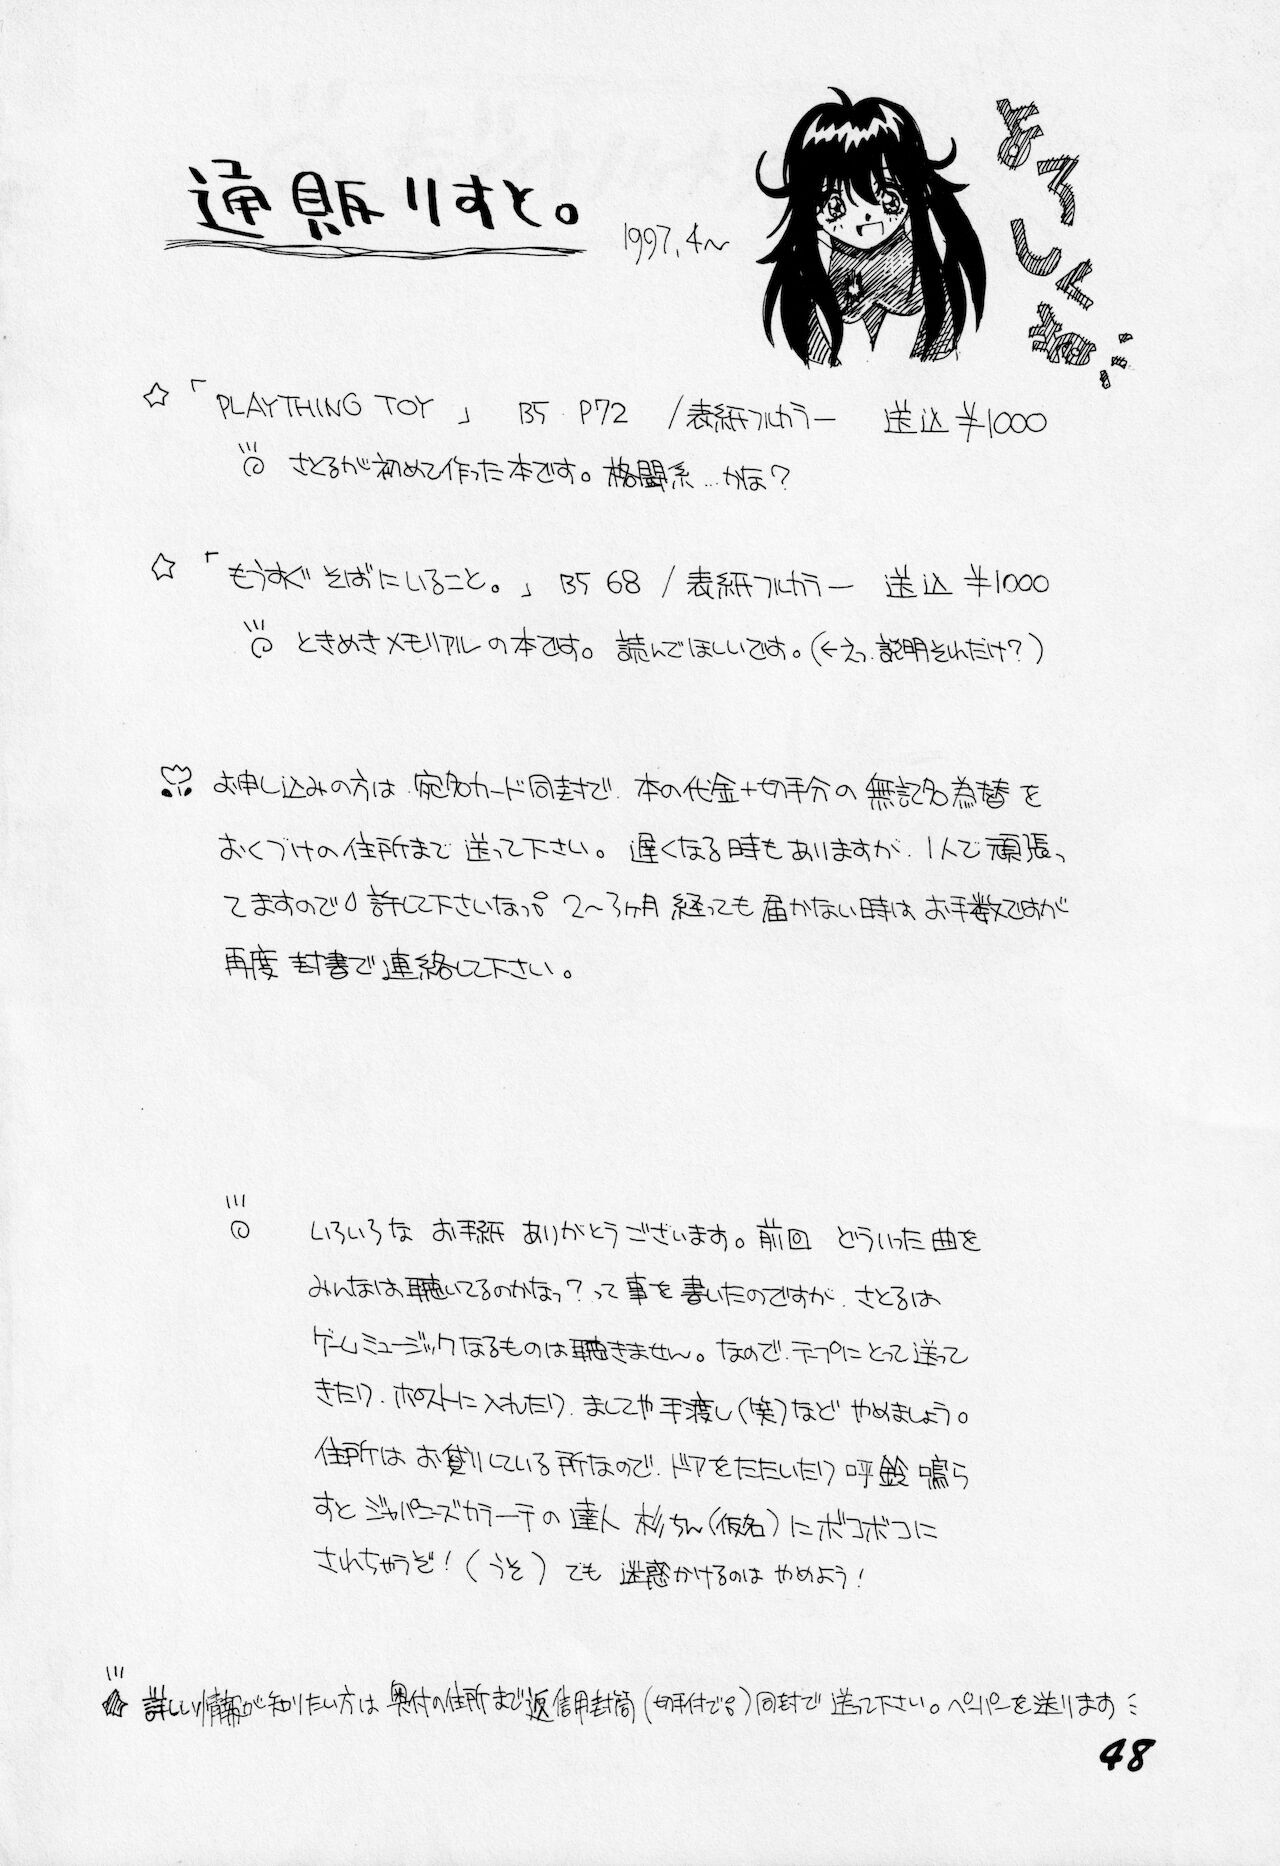 通販りすと。
1997.4〜
よろしくね!
☆「PLAYTHING TOY」 B5 P72 /表紙フルカラー 送込¥1000
さとるが初めて作った本です。格闘系…かな?
☆「もうすぐそばにいること。」B5 68 /表紙フルカラー 送込¥1000
ときめきメモリアルの本です。読んでほしいです。(←えっ.説明それだけ?)
お申し込みの方は.宛名カード同封で.本の代金+切手分の無記名為替を
おくづけの住所まで送って下さい。遅くなる時もありますが.1人で頑張っ
てますので許して下さいなっ。2〜3ヶ月経っても届かない時はお手数ですが
再度封書で連絡して下さい。
いろいろなお手紙ありがとうございます。前回どういった曲を
みんなは聴いてるのかなっ?って事を書いたのですが.さとるは
ゲームミュージックなるものは聴きません。なので.テープにとって送って
きたり.ポストに入れたり.ましてや手渡し(笑)などやめましょう。
住所はお貸りしている所なので.ドアをたたいたり呼鈴鳴ら
すとジャパニーズカラーテの達人杉ちん(仮名)にボコボコに
されちゃうぞ!(うそ)でも迷惑かけるのはやめよう!
詳しい情報が知りたい方は奥付の住所まで返信用封筒(切手付で。)同封で送って下さい。ペーパーを送ります
48